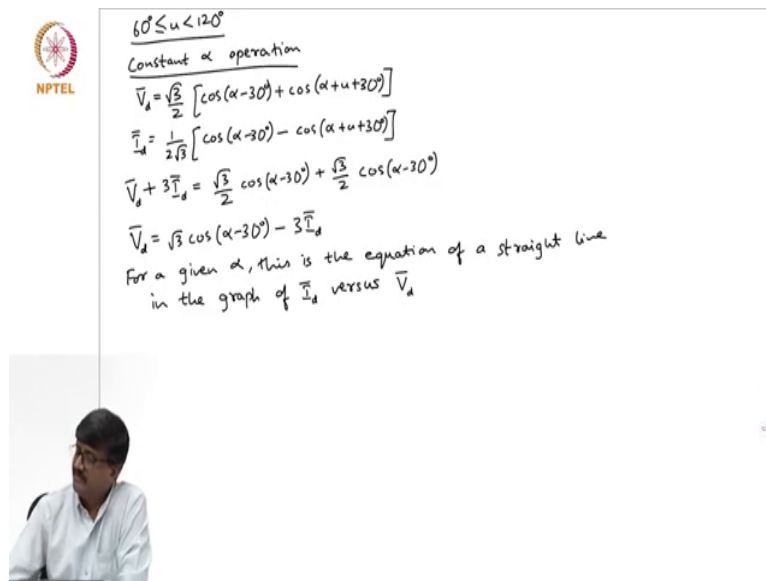 60° ≤ u < 120°
Constant α operation
V̄d = √3/2 [cos(α-30°) + cos(α+u+30°)]
Īd = 1/2√3 [cos(α-30°) - cos(α+u+30°)]
V̄d + 3Īd = √3/2 cos(α-30°) + √3/2 cos(α-30°)
V̄d = √3 cos(α-30°) - 3Īd
For a given α, this is the equation of a straight line
in the graph of Īd versus V̄d
NPTEL